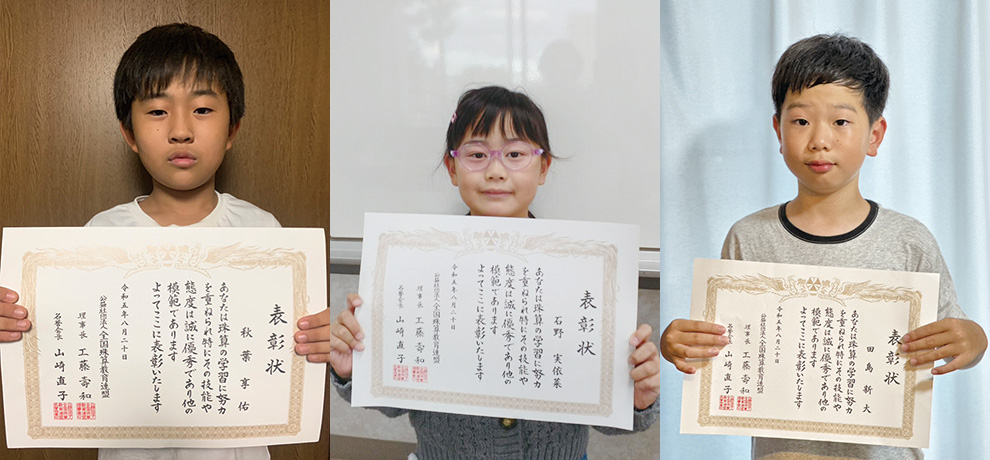 表彰状
秋葉 享佑
あなたは珠算の学習に努力
を重ねられ特にその技能や
態度は誠に優秀であり他の
模範であります
よってここに表彰いたします
令和五年八月二十日
公益社団法人全国珠算教育連盟
理事長 工藤壽和
名誉会長 山崎直子
表彰状
石野 実依菜
あなたは珠算の学習に努力
を重ねられ特にその技能や
態度は誠に優秀であり他の
模範であります
よってここに表彰いたします
令和五年八月二十日
公益社団法人全国珠算教育連盟
理事長 工藤壽和
名誉会長 山崎直子
表彰状
田島新大
あなたは珠算の学習に努力
を重ねられ特にその技能や
態度は誠に優秀であり他の
模範であります
よってここに表彰いたします
令和五年八月二十日
公益社団法人全国珠算教育連盟
理事長 工藤壽和
名誉会長 山崎直子